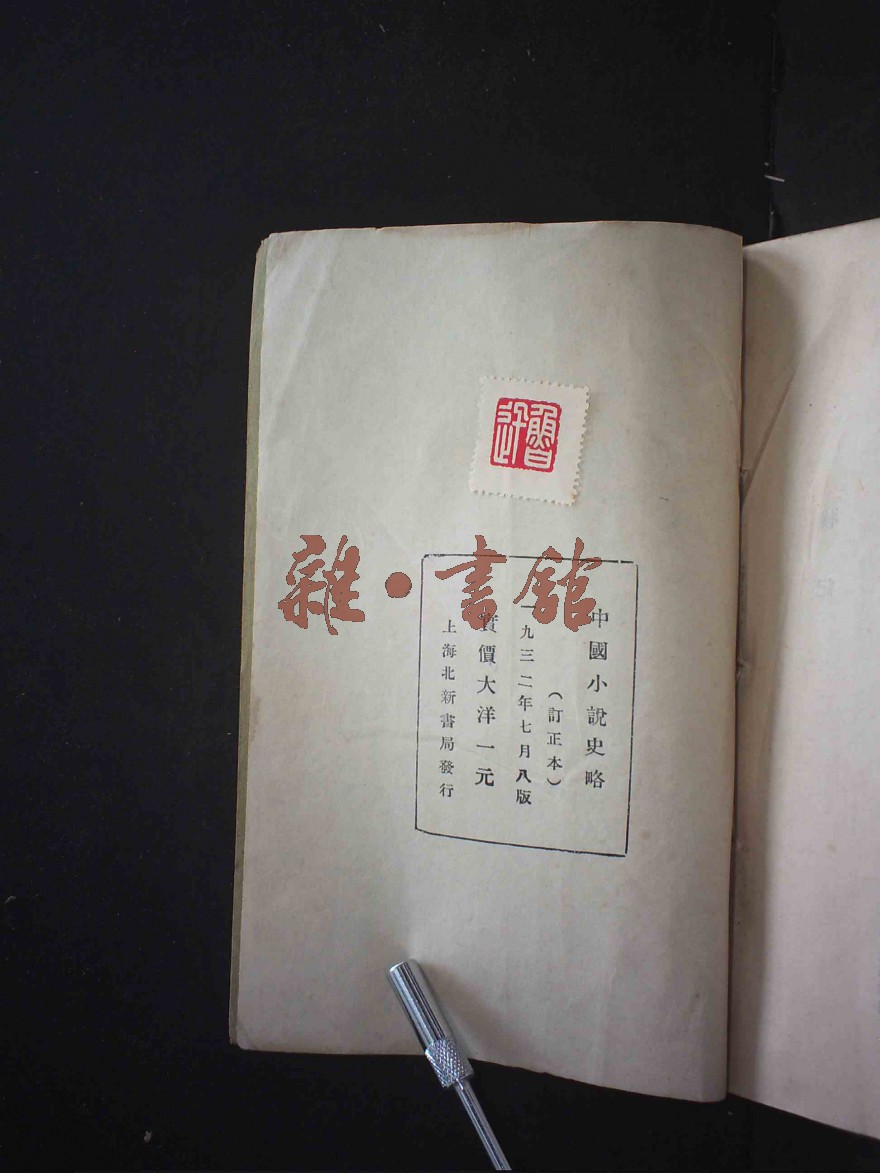 魯迅
中國小說史略
（訂正本）
一九三二年七月八版
實價大洋一元
上海北新書局發行
雜·書館